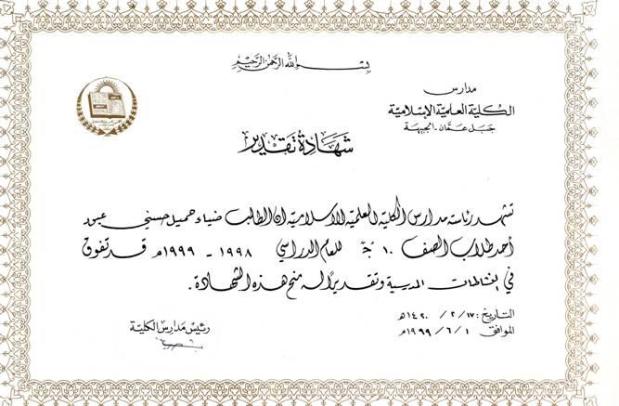 بسم الله الرحمن الرحيم
مدارس
الكلية العلمية الإسلامية
جبل عمّان - الجبيهة
شهادة تقدير
تشهد رئاسة مدارس الكلية العلمية الاسلامية ان الطالب ضياء جميل حسني عبود
أحد طلاب الصف ١٠ للعام الدراسي ١٩٩٨ - ١٩٩٩م قد تفوق
في النشاطات المدرسية وتقديراً له منح هذه الشهادة.
التاريخ: ١٧/ ٢ / ١٤٢٠هـ
الموافق ١ / ٦ / ١٩٩٩م
رئيس مدارس الكلية